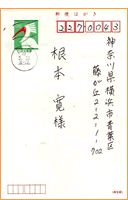 郵便はがき
2270043
神奈川県横浜市青葉区
藤が丘2-2-1-702
根本寛様